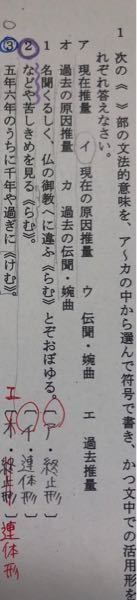 1 次の《 》部の文法的意味を、ア〜カの中から選んで符号で書き、かつ文中での活用形を
れぞれ答えなさい。
ア 現在推量 イ 現在の原因推量 ウ 伝聞・婉曲 エ 過去推量
オ 過去の原因推量 カ 過去の伝聞・婉曲
1 名聞くるしく、仏の御教へに違ふ《らむ》とぞおぼゆる。〔ア・終止形〕
2 などや苦しきめを見る《らむ》。〔イ・連体形〕
3 五年六年のうちに千年や過ぎに《けむ》。〔オ・終止形〕
エ 連体形